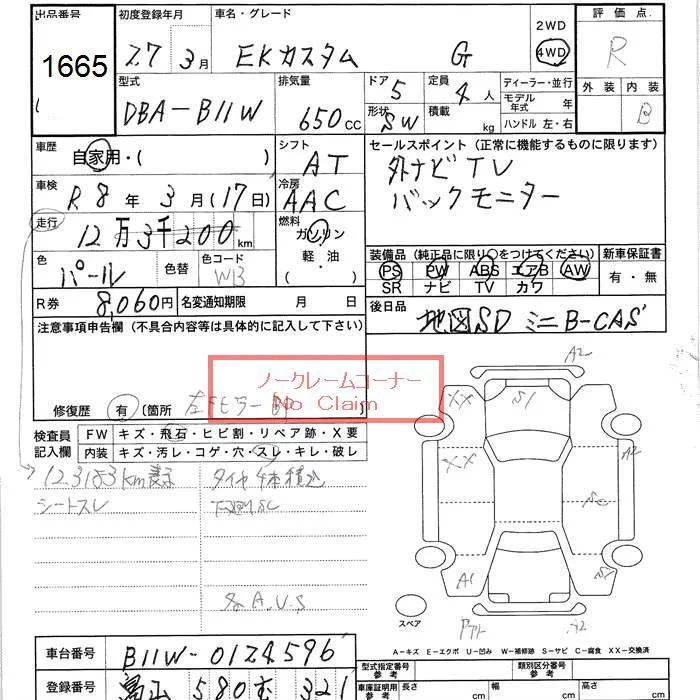 出品番号
1665
初度登録年月
27年 3月
車名・グレード
EKカスタム G
2WD
4WD
評価点
R
外装 内装
B
型式
DBA-B11W
排気量
650 cc
ドア 5
形状 SW
定員 4人
積載 kg
ディーラー・並行
モデル年式 年
ハンドル 左・右
車歴
自家用・( )
シフト
AT
セールスポイント (正常に機能するものに限ります)
外ナビ TV
バックモニター
車検
R8年 3月(17日)
冷房
AAC
走行
12万3千200km
燃料
ガソリン
軽・油
( )
色
パール
色替
色コード
W13
装備品 (純正品に限り○をつけてください)
PS PW ABS エアB AW
SR ナビ TV カワ
新車保証書
有・無
R券
8,060円
名変通知期限 月 日
後日品
地図SD ミニB-CAS
注意事項申告欄 (不具合内容等は具体的に記入して下さい)
ノークレームコーナー
No Claim
修復歴 有 (箇所 左Fピラー )
検査員記入欄
FW キズ・飛石・ヒビ割・リペア跡・X要
内装 キズ・汚レ・コゲ・穴・スレ・キレ・破レ
123183km表示
シートスレ
タイヤ4本積込
下廻りSC
A.U.S
A2
XX
S1
XX
A2
A1
S1
A2
スペア
A-キズ E-エクボ U-凹み W-補修跡 S-サビ C-腐食 XX-交換済
車台番号
B11W-0124596
登録番号
580 321
型式指定番号 参考
類別区分番号 参考
車庫証明用 参考
長さ cm
幅 cm
高さ cm